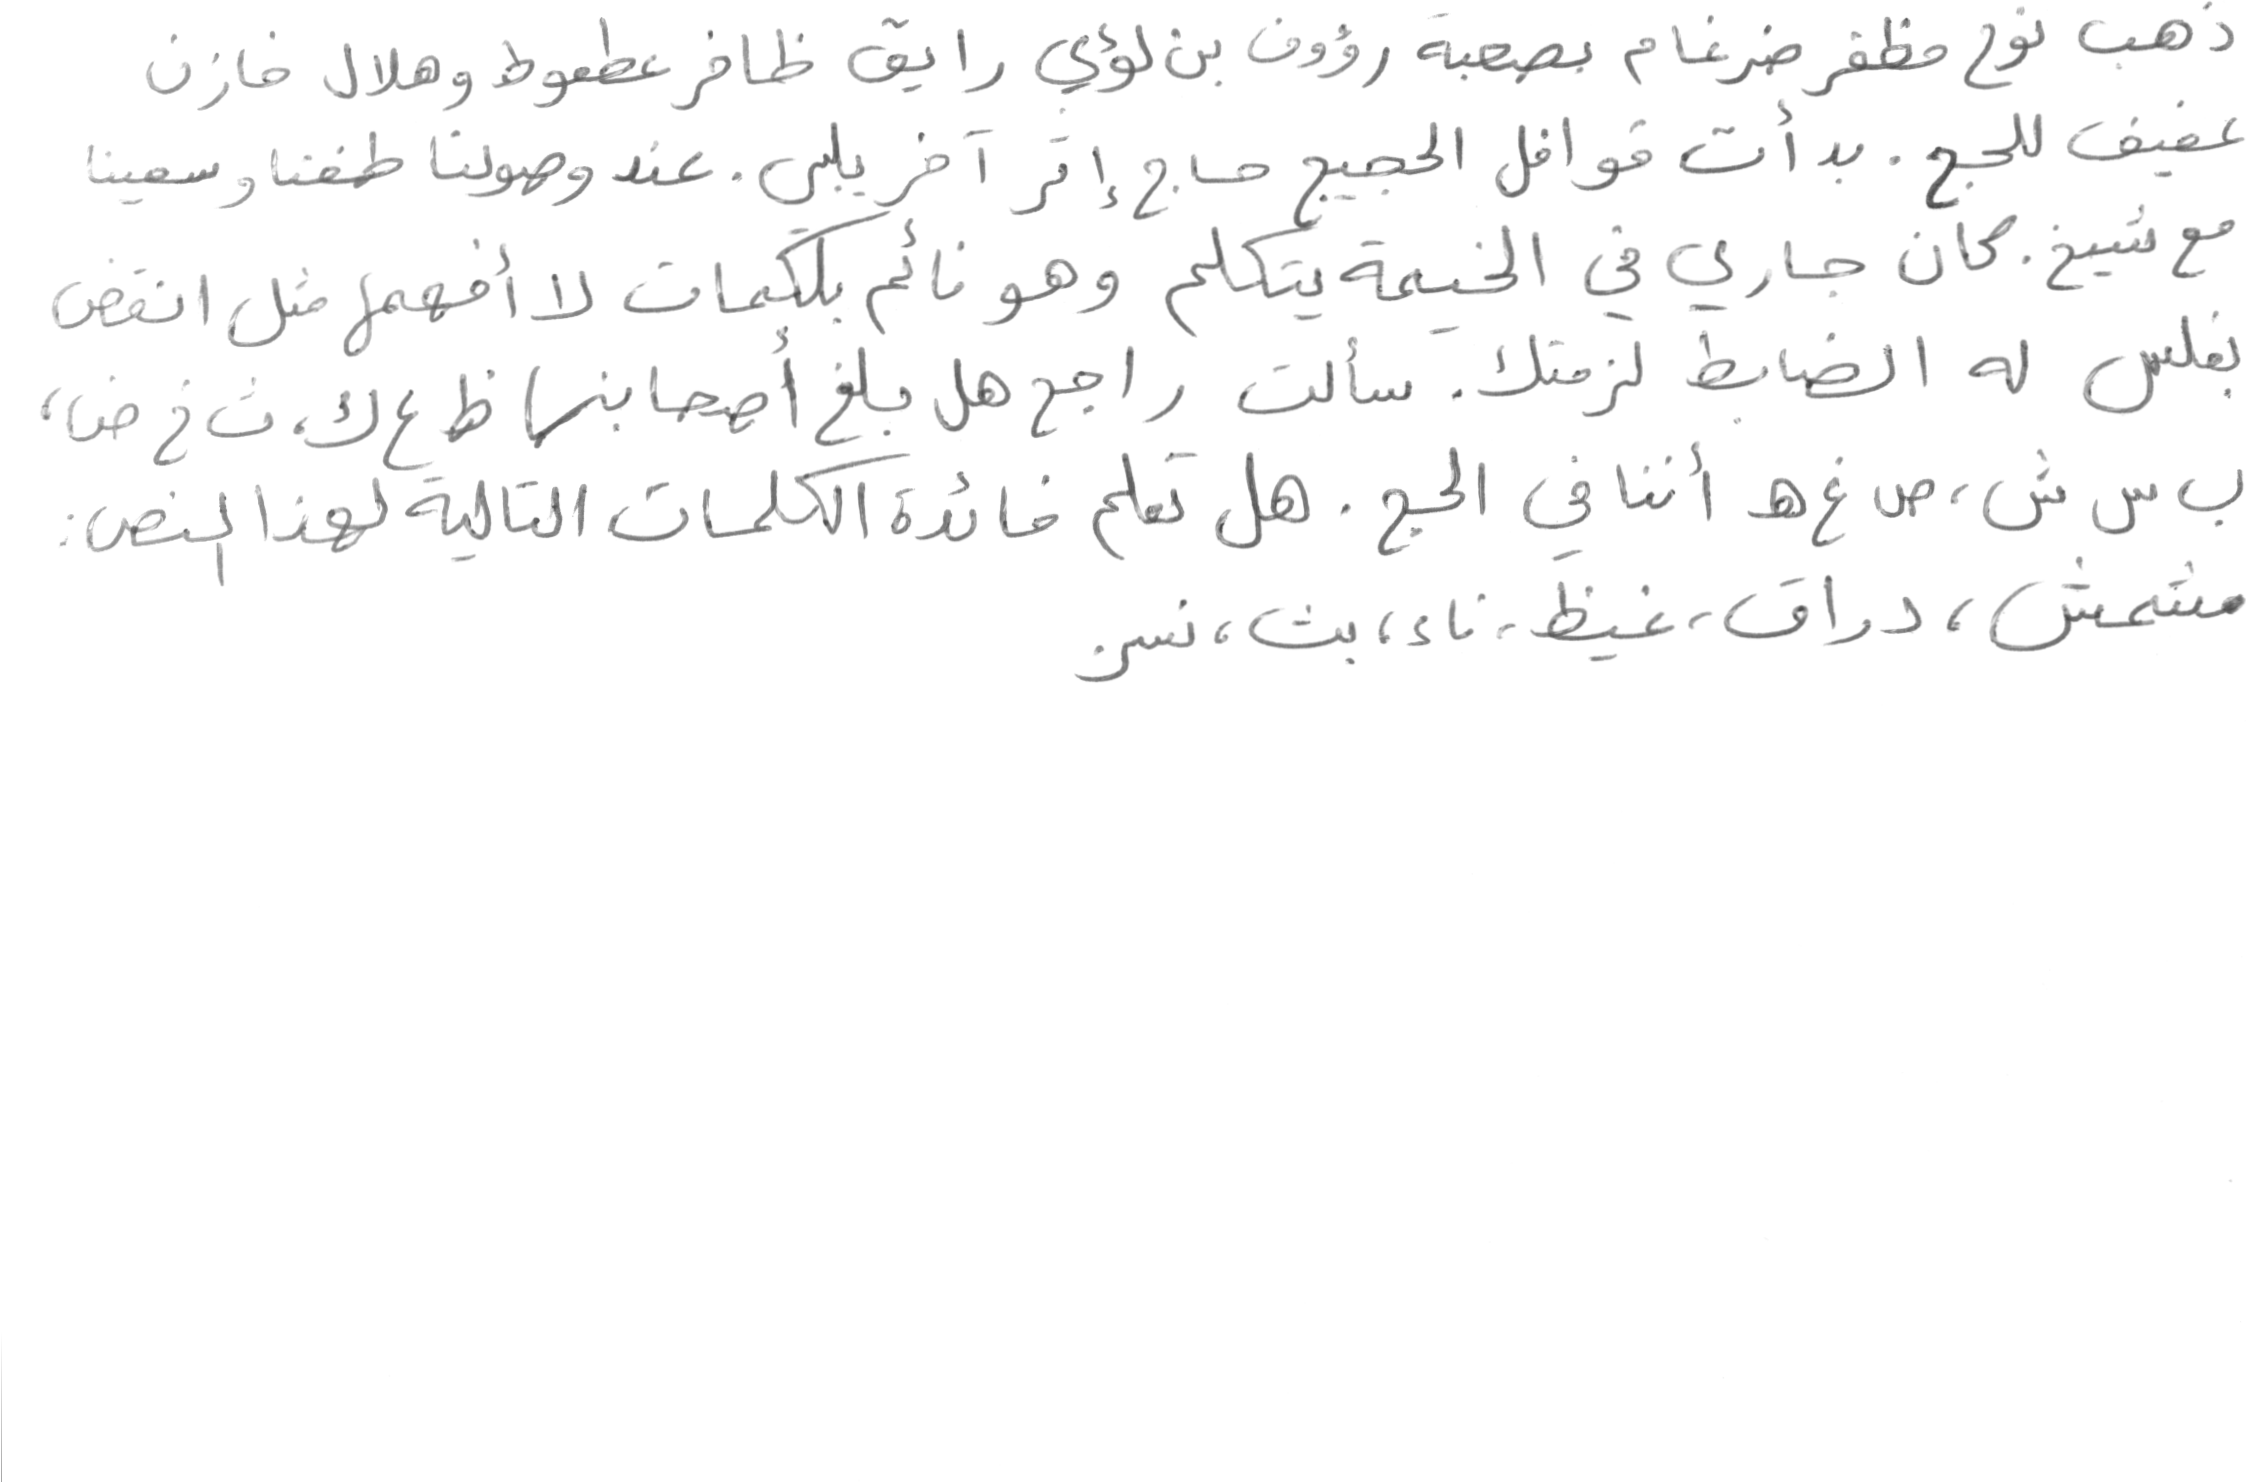 ذهب نوح مظفر ضرغام بصحبة رؤوف بن لؤي رايق ظافر عطعوط وهلال خازن
عفيف للحج. بدأت قوافل الحجيج حاج إثر آخر يلبي. عند وصولنا طفنا وسعينا
مع شيخ. كان جاري في الخيمة يتكلم وهو نائم بكلمات لا أفهمها مثل انقض
بغلس له الضابط لزمتك. سألت راجح هل بلغ أصحابنا ظ ع ك، ث خ ض،
ب س ش، ص غ ه أننا في الحج. هل تعلم فائدة الكلمات التالية لهذا النص:
مشمش، دراق، غيظ، ناء، بث، نسر